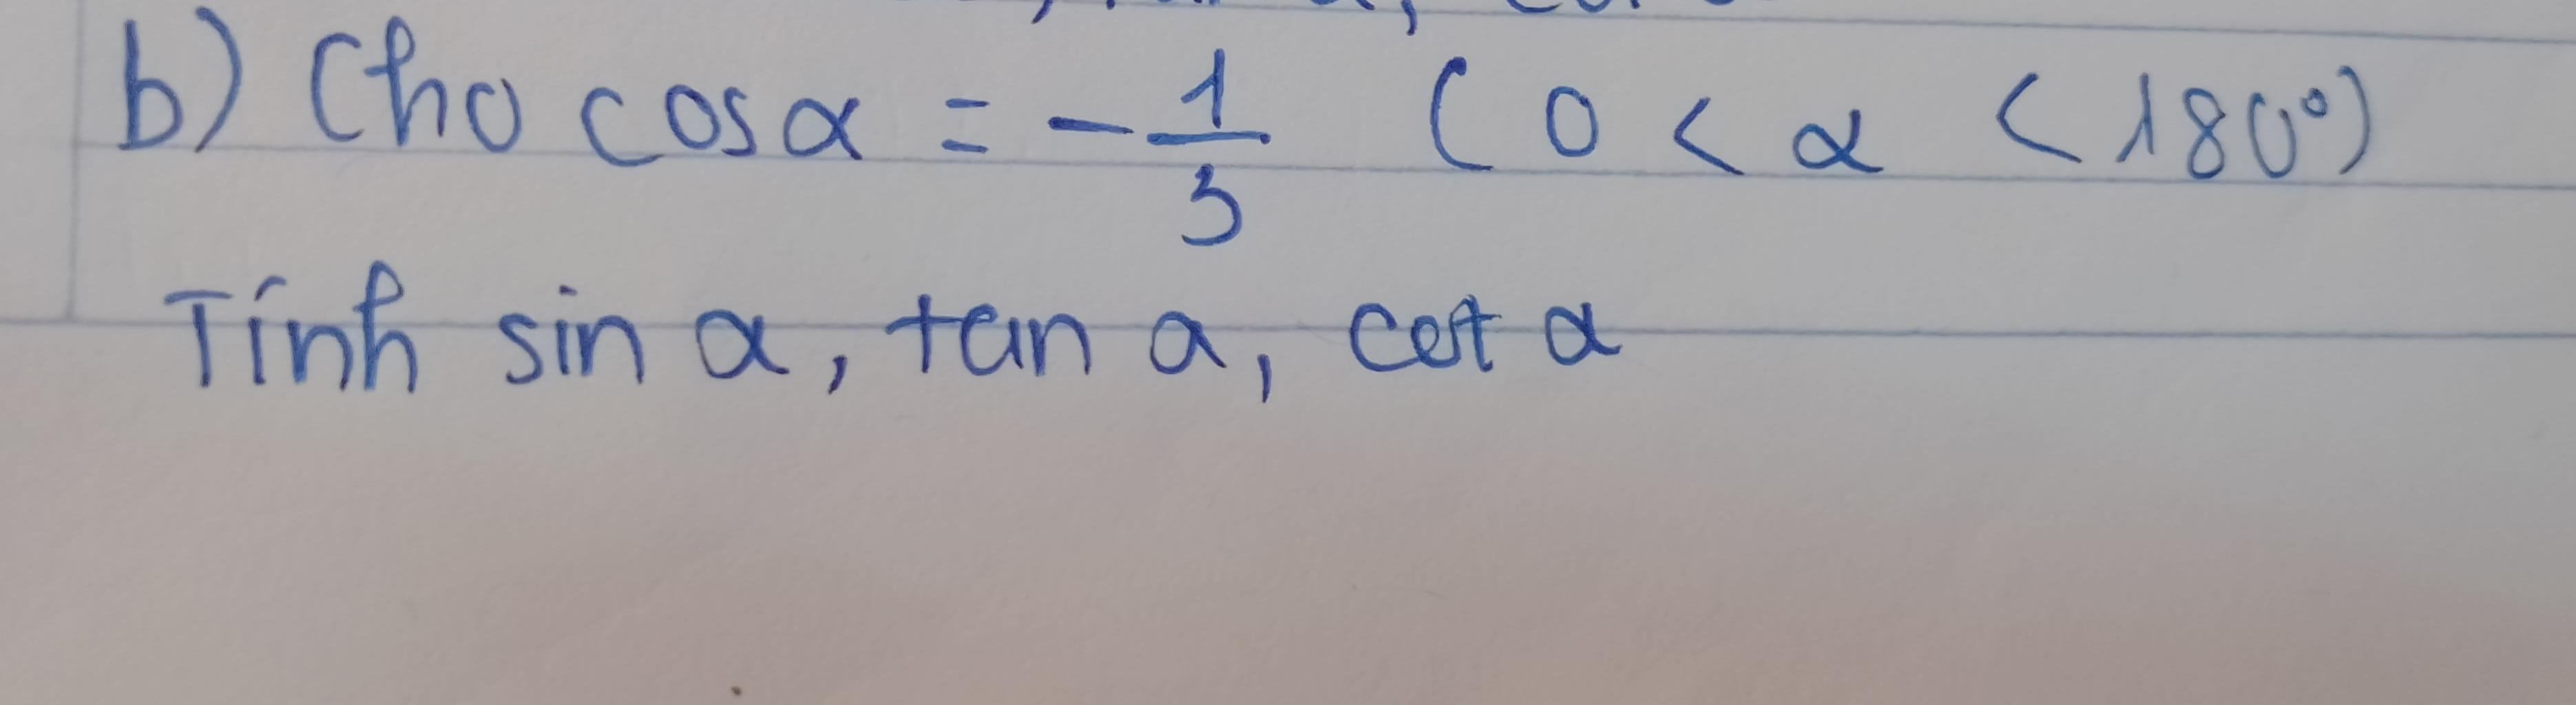 b) Cho cos α = - 1/3 ( 0 < α < 180°)
Tính sin α, tan α, cot α